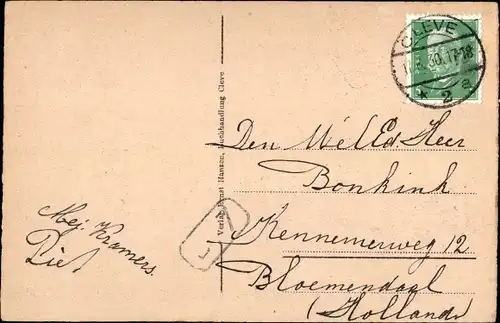 CLEVE
.30. 17-18
* 2 a
Verlag Ernst Hansen, Buchhandlung Cleve
Den WelEd Heer
Bonkink
Kennemerweg 12
Bloemendaal
(Holland)
Mej. Kramers.
Piet